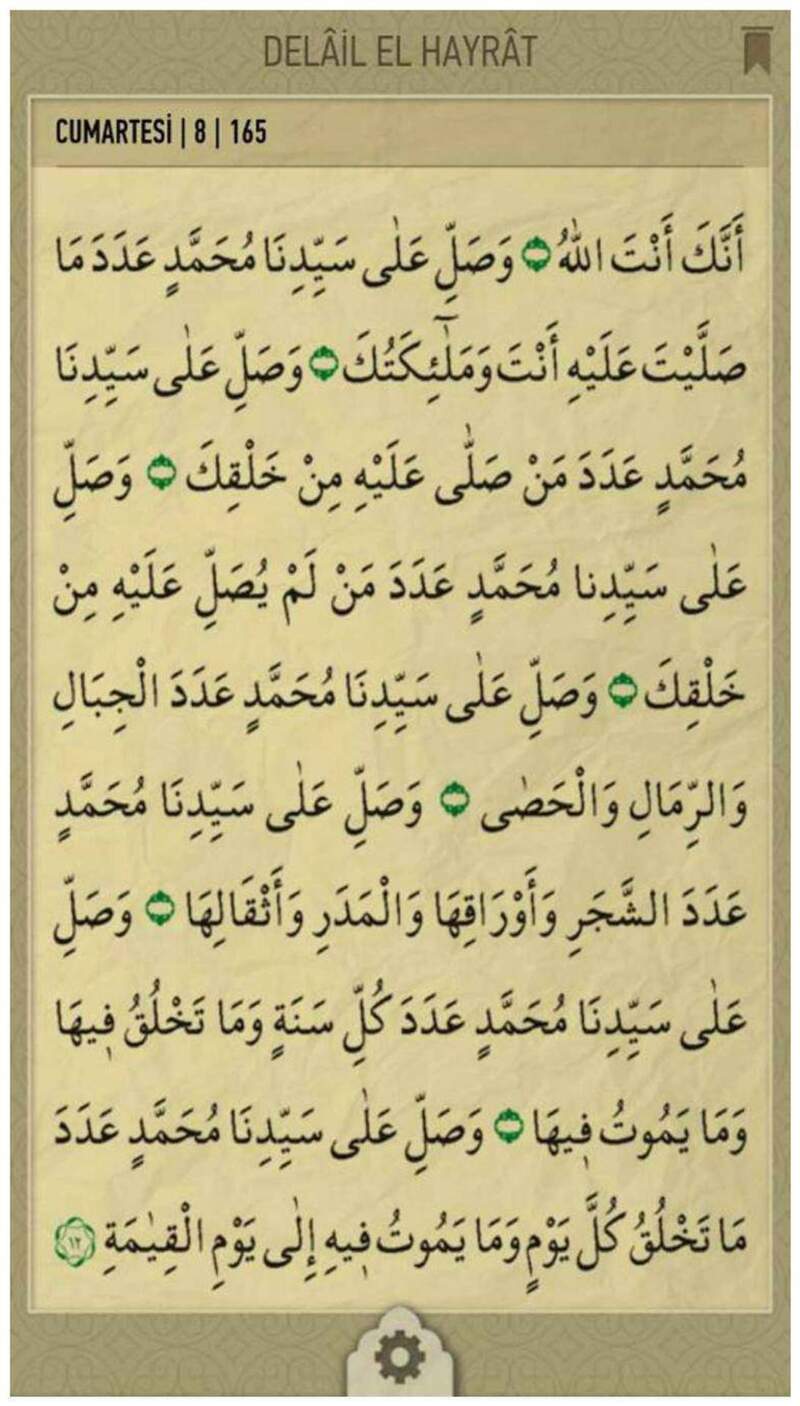 DELÂİL EL HAYRÂT
CUMARTESİ | 8 | 165
أَنَّكَ أَنْتَ اللّٰهُ وَصَلِّ عَلٰى سَيِّدِنَا مُحَمَّدٍ عَدَدَ مَا
صَلَّيْتَ عَلَيْهِ أَنْتَ وَمَلٰٓئِكَتُكَ وَصَلِّ عَلٰى سَيِّدِنَا
مُحَمَّدٍ عَدَدَ مَنْ صَلّٰى عَلَيْهِ مِنْ خَلْقِكَ وَصَلِّ
عَلٰى سَيِّدِنا مُحَمَّدٍ عَدَدَ مَنْ لَمْ يُصَلِّ عَلَيْهِ مِنْ
خَلْقِكَ وَصَلِّ عَلٰى سَيِّدِنَا مُحَمَّدٍ عَدَدَ الْجِبَالِ
وَالرِّمَالِ وَالْحَصٰى وَصَلِّ عَلٰى سَيِّدِنَا مُحَمَّدٍ
عَدَدَ الشَّجَرِ وَأَوْرَاقِهَا وَالْمَدَرِ وَأَثْقَالِهَا وَصَلِّ
عَلٰى سَيِّدِنَا مُحَمَّدٍ عَدَدَ كُلِّ سَنَةٍ وَمَا تَخْلُقُ فِيهَا
وَمَا يَمُوتُ فِيهَا وَصَلِّ عَلٰى سَيِّدِنَا مُحَمَّدٍ عَدَدَ
مَا تَخْلُقُ كُلَّ يَوْمٍ وَمَا يَمُوتُ فِيهِ إِلٰى يَوْمِ الْقِيٰمَةِ ١٢